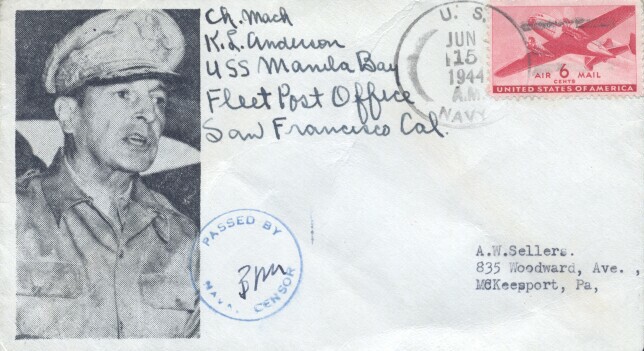 Ch. Mach
K.L. Anderson
USS Manila Bay
Fleet Post Office
San Francisco Cal.
U. S.
JUN
15
1944
A.M.
NAVY
AIR 6 MAIL
CENTS
UNITED STATES OF AMERICA
PASSED BY
NAVAL CENSOR
A.W.Sellers.
835 Woodward, Ave. ,
McKeesport, Pa,